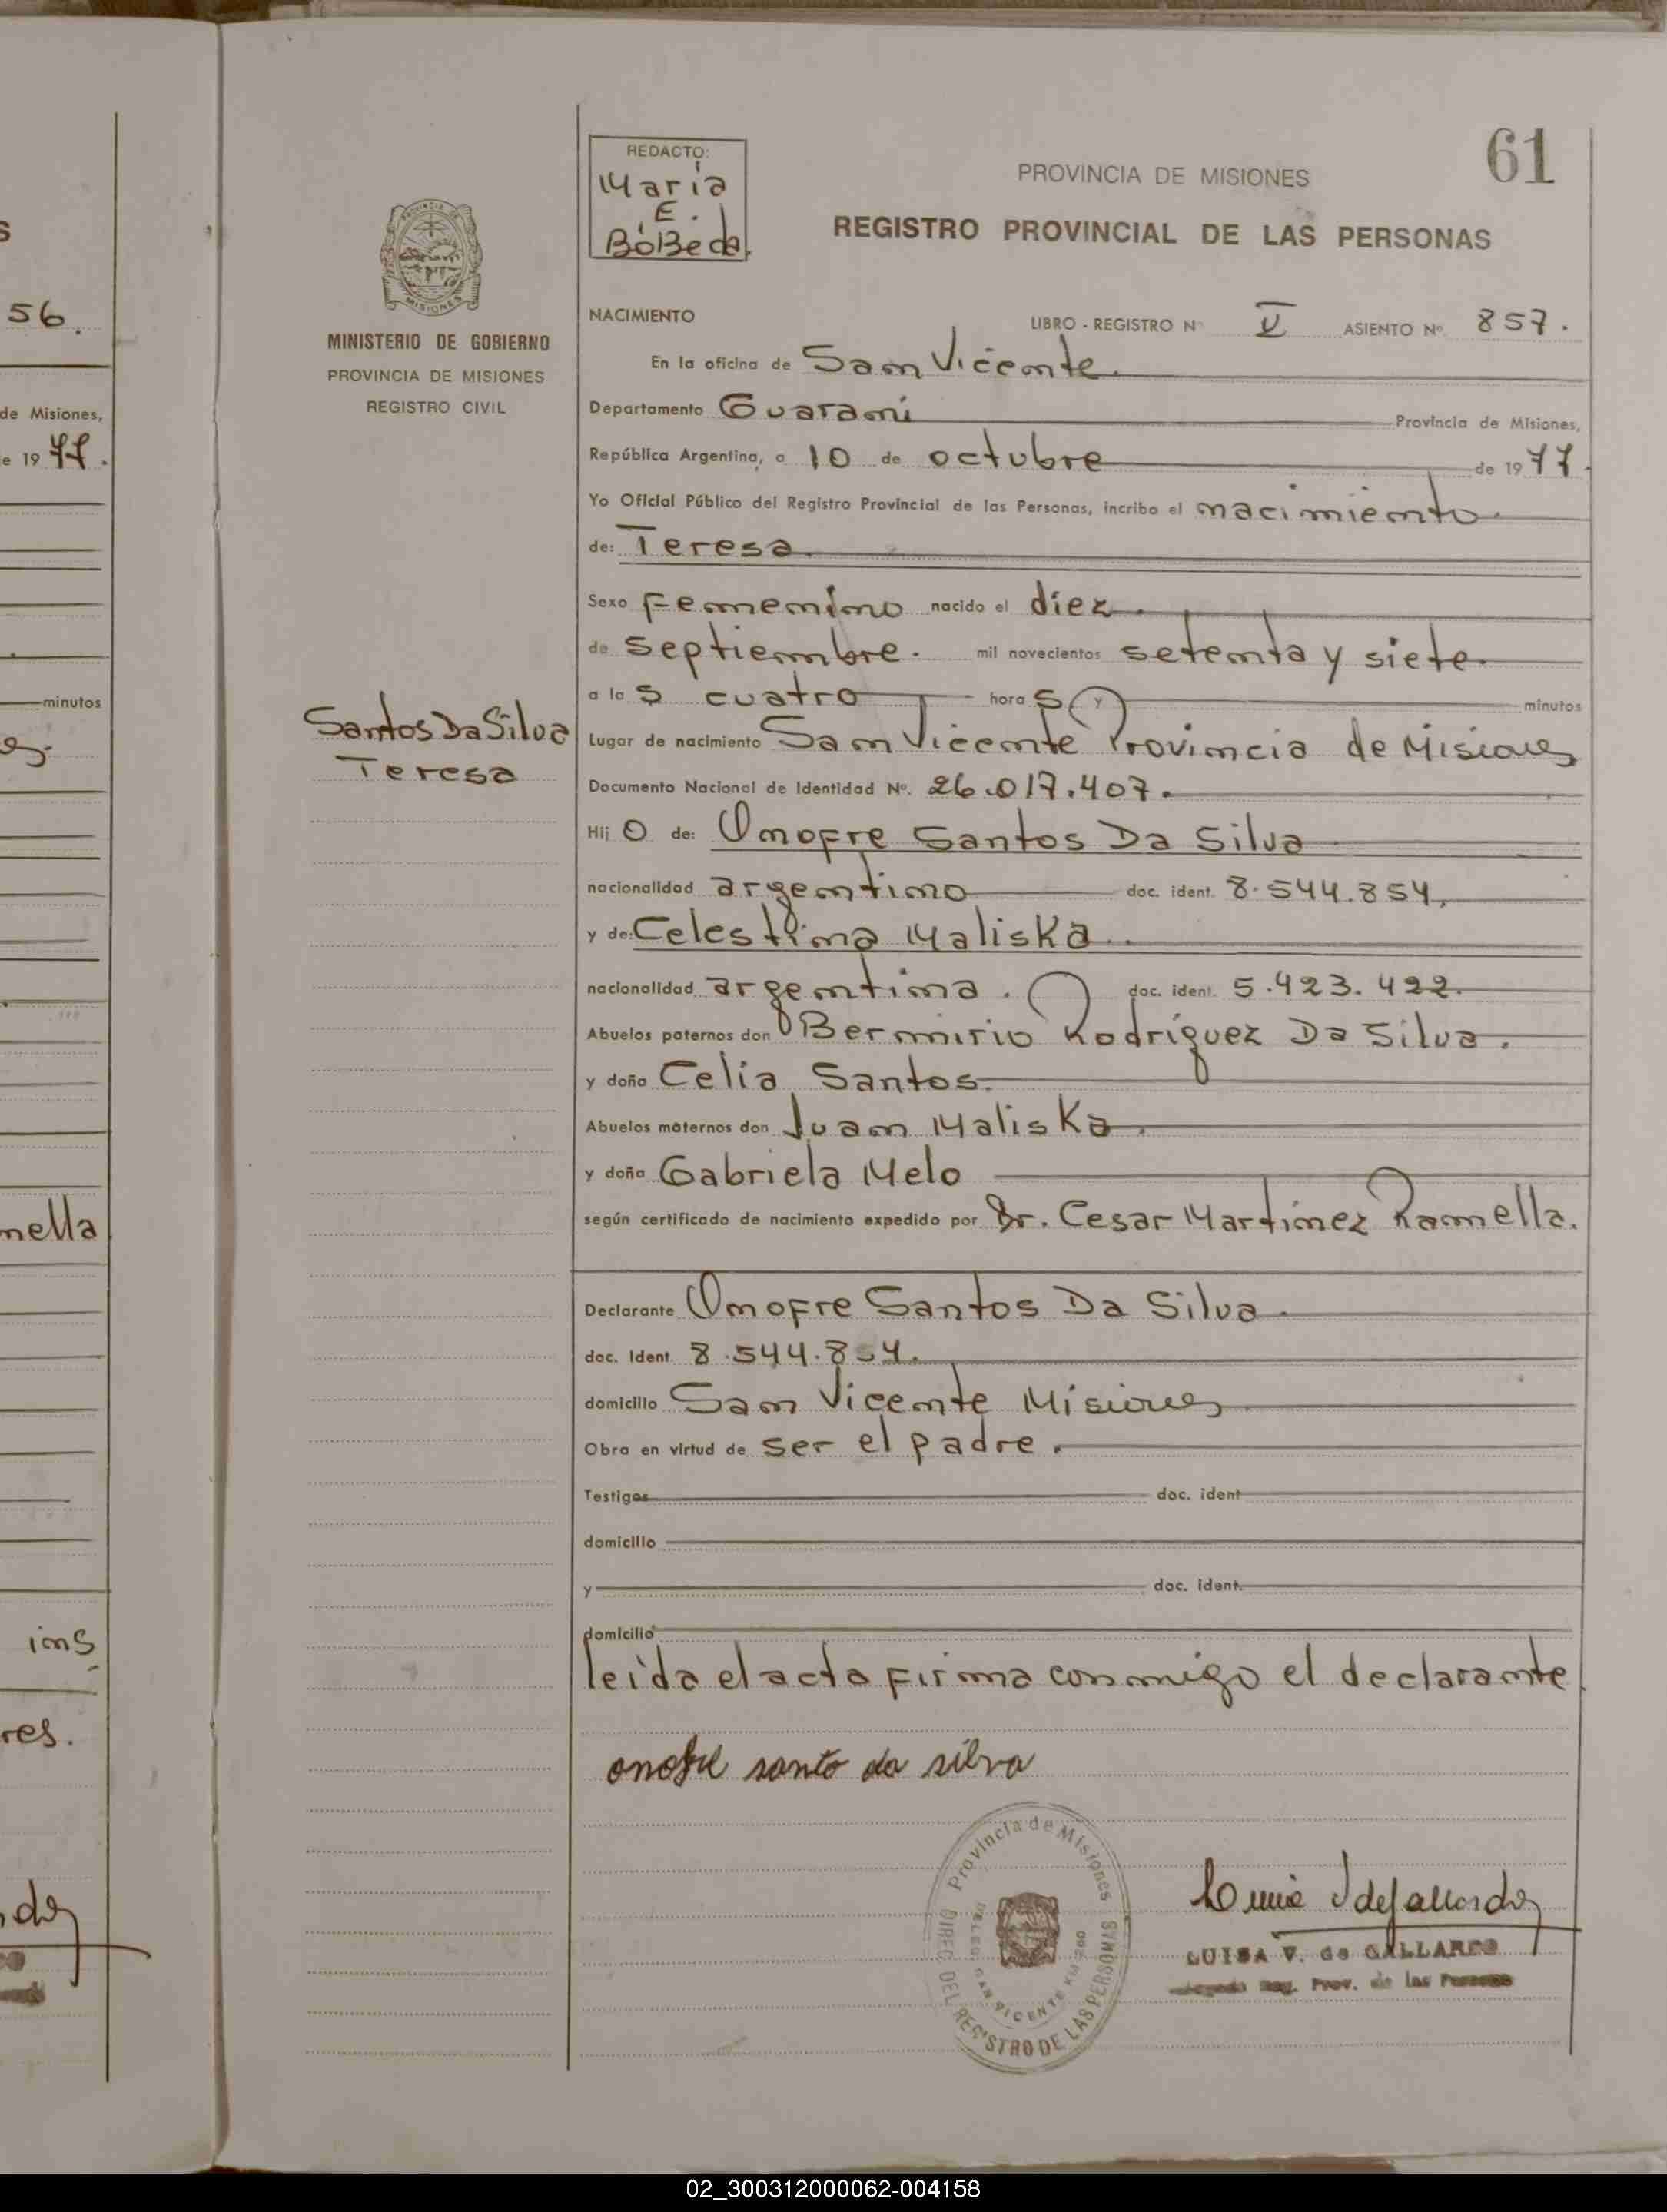 S
56.
de Misiones,
e 19 77.
minutos
es.
mella
ins
res.
REDACTÓ:
María
E.
BóBeda.
61
PROVINCIA DE MISIONES
REGISTRO PROVINCIAL DE LAS PERSONAS
PROVINCIA DE
MISIONES
MINISTERIO DE GOBIERNO
PROVINCIA DE MISIONES
REGISTRO CIVIL
Santos Da Silva
Teresa
NACIMIENTO LIBRO - REGISTRO Nº V ASIENTO Nº 857.
En la oficina de San Vicente.
Departamento Guaraní Provincia de Misiones,
República Argentina, a 10 de octubre de 19 77.
Yo Oficial Público del Registro Provincial de las Personas, incribo el nacimiento.
de: Teresa.
Sexo Femenino nacido el diez.
de septiembre. mil novecientos setenta y siete.
a la s cuatro hora s y minutos
Lugar de nacimiento San Vicente Provincia de Misiones
Documento Nacional de Identidad Nº. 26.017.407.
Hij O de: Onofre Santos Da Silva
nacionalidad argentino doc. ident. 8.544.854.
y de: Celestina Maliska.
nacionalidad argentina. doc. ident. 5.423.422.
Abuelos paternos don Bermirio Rodríguez Da Silva.
y doña Celia Santos.
Abuelos maternos don Juan Maliska.
y doña Gabriela Melo
según certificado de nacimiento expedido por Dr. Cesar Martinez Ramella.
Declarante Onofre Santos Da Silva.
doc. Ident. 8.544.854.
domicilio San Vicente Misiones
Obra en virtud de ser el padre.
Testigos doc. ident
domicilio
y doc. ident.
domicilio
leida el acta firma conmigo el declarante.
onofre santo da silva
Provincia de Misiones
DIREC. DEL REGISTRO DE LAS PERSONAS
DELEG. SAN VICENTE
LUISA V. de GALLARDO
Reg. Prov. de las Personas
02_300312000062-004158